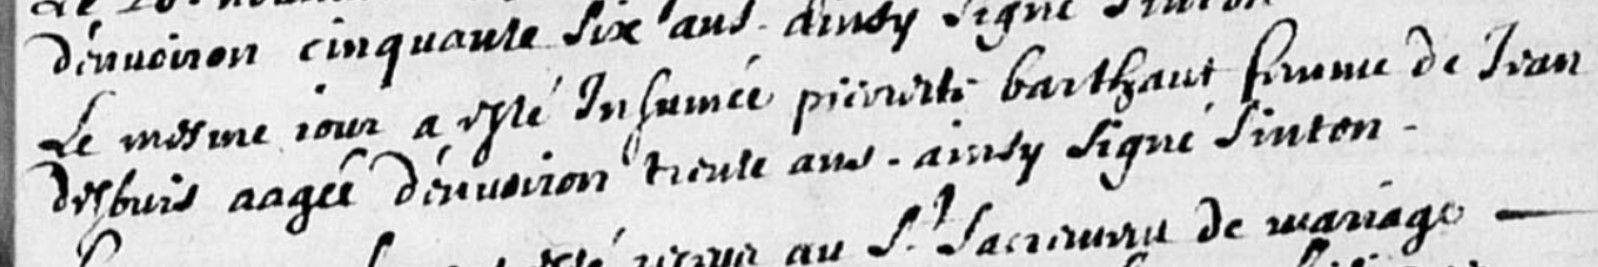 Le
d'enuoiron cinquante six ans. ainsy signé Sinton
Le mesme iour a esté Inhumée pierrette barthaut femme de Jean
desbuis aagée d'enuoiron trente ans. ainsy signé Sinton -
esté receu au St Sacrement de mariage